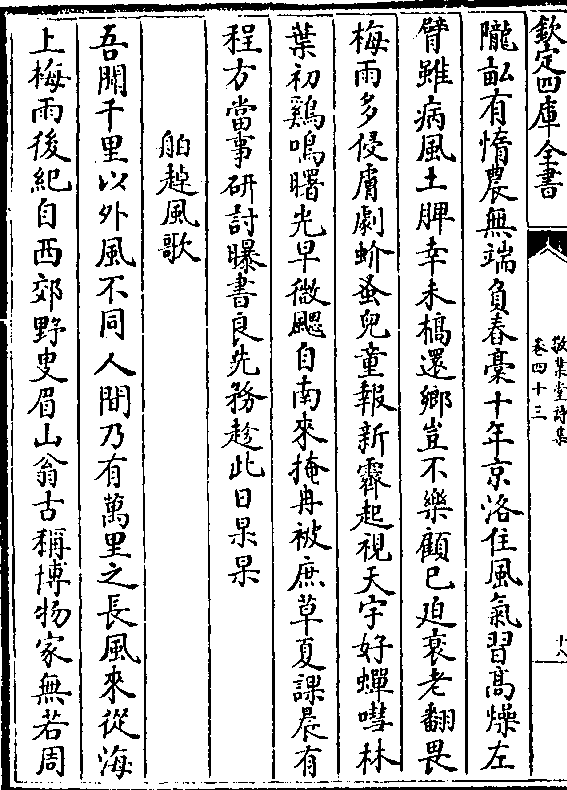 欽定四庫全書
敬業堂詩集
卷四十三
十八
隴畆有惰農無端負舂稾十年京洛住風氣習髙燥左
臂雖病風土脾幸未槁還鄉豈不樂顧已廹衰老翻畏
梅雨多侵膚劇蚧蚤兒童報新霽起視天宇好蟬嘒林
葉初鷄鳴曙光早微颸自南來掩冉被庶草夏課晨有
程方當事研討曝書良先務趁此日杲杲
舶趠風歌
吾聞千里以外風不同人間乃有萬里之長風來從海
上梅雨後紀自西郊野叟眉山翁古稱博物家無若周